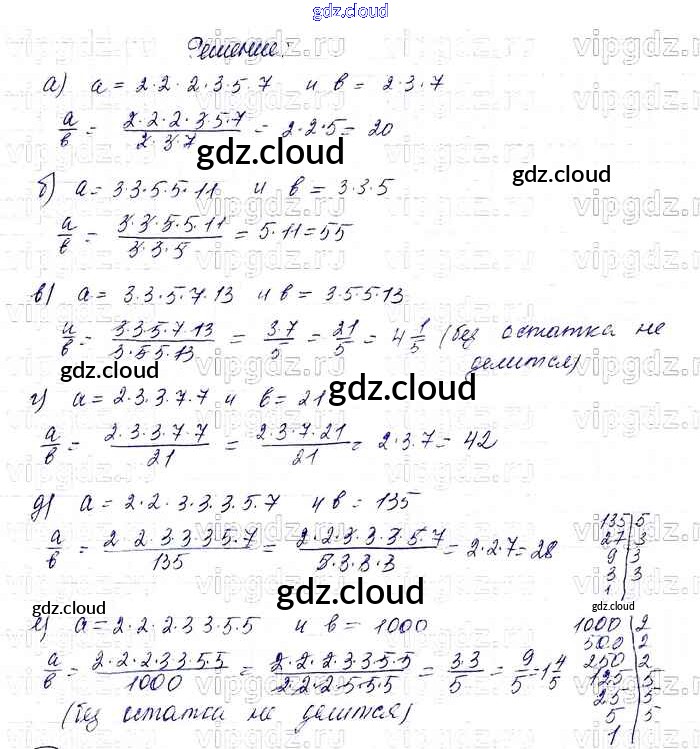 gdz.cloud
Решение:
а) a = 2·2·2·3·5·7 и b = 2·3·7
a/b = 2·2·2·3·5·7/2·3·7 = 2·2·5 = 20
gdz.cloud
gdz.cloud
б) a = 3·3·5·5·11 и b = 3·3·5
a/b = 3·3·5·5·11/3·3·5 = 5·11 = 55
в) a = 3·3·5·7·13 и b = 3·5·5·13
a/b = 3·3·5·7·13/3·5·5·13 = 3·7/5 = 21/5 = 4 1/5 (без остатка не
делится)
gdz.cloud
gdz.cloud
г) a = 2·3·3·7·7 и b = 21
a/b = 2·3·3·7·7/21 = 2·3·7·21/21 = 2·3·7 = 42
д) a = 2·2·3·3·3·5·7 и b = 135
a/b = 2·2·3·3·3·5·7/135 = 2·2·3·3·3·5·7/5·3·3·3 = 2·2·7 = 28
135 | 5
27 | 3
9 | 3
3 | 3
1
gdz.cloud
gdz.cloud
gdz.cloud
е) a = 2·2·2·3·3·5·5 и b = 1000
a/b = 2·2·2·3·3·5·5/1000 = 2·2·2·3·3·5·5/2·2·2·5·5·5 = 3·3/5 = 9/5 = 1 4/5
(без остатка не делится)
1000 | 2
500 | 2
250 | 2
125 | 5
25 | 5
5 | 5
1
vipgdz.ru